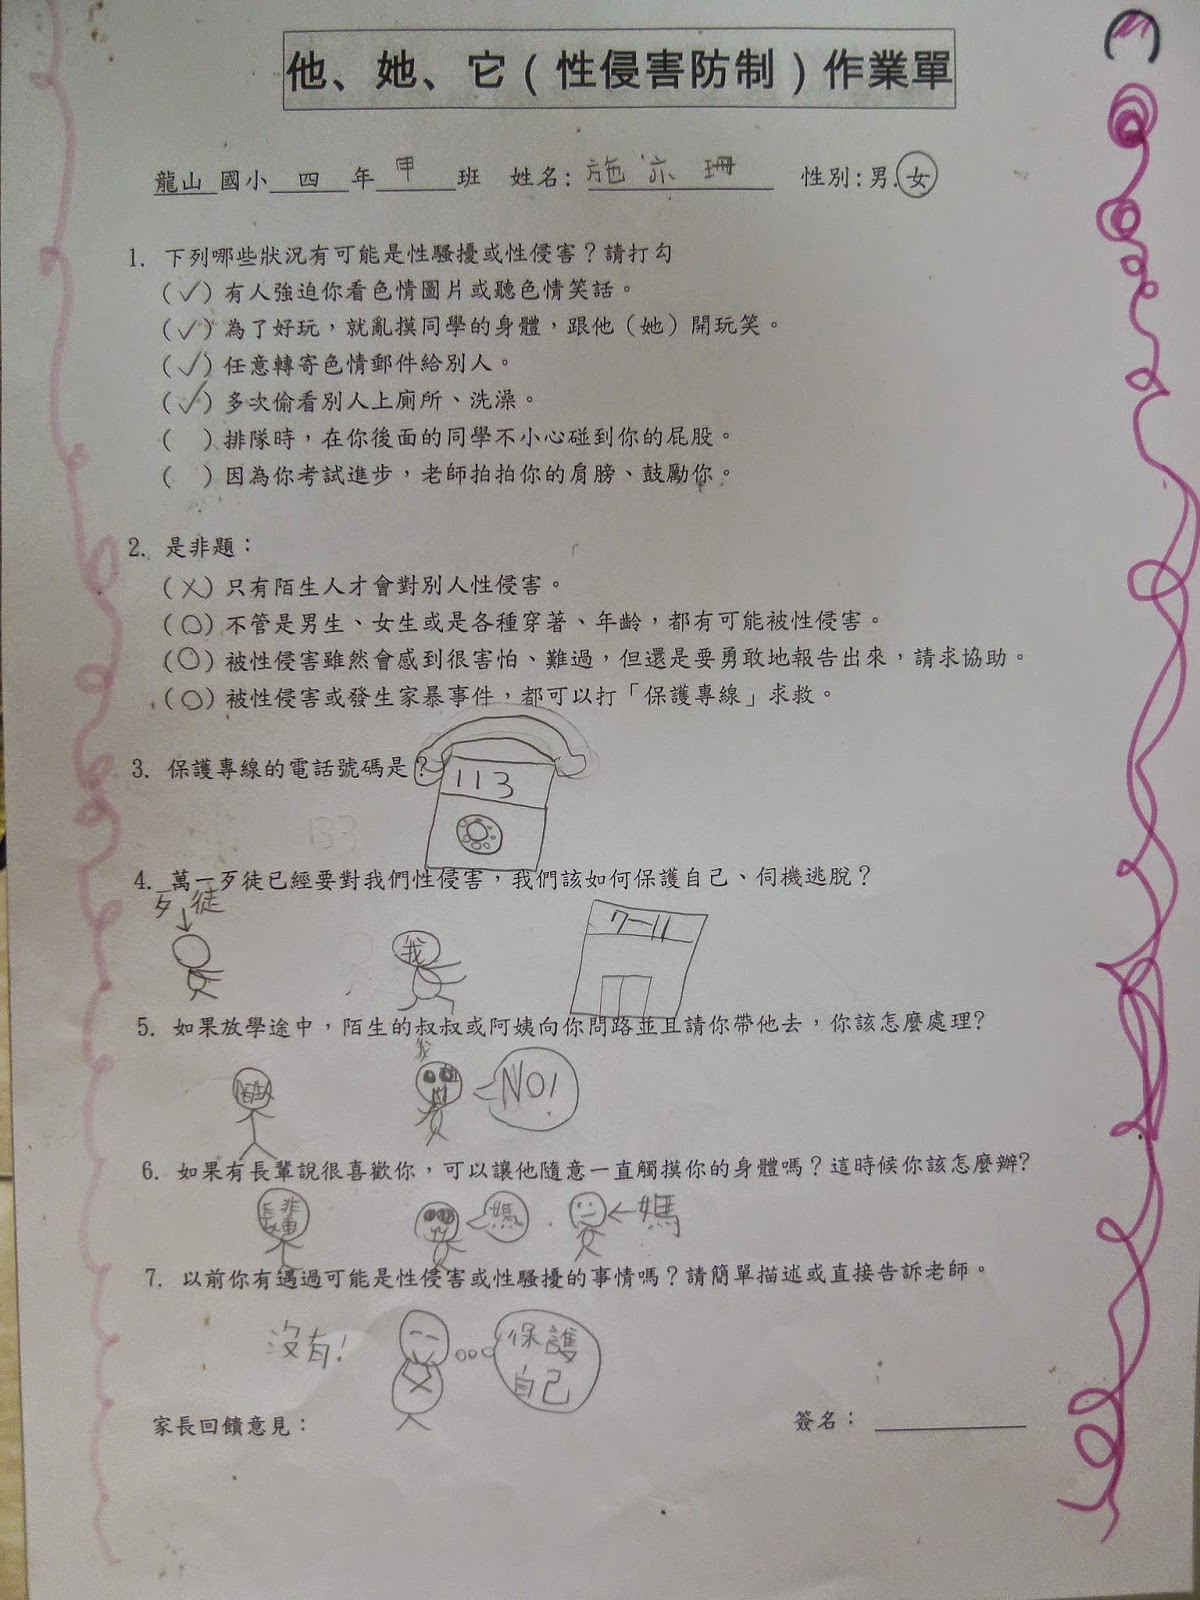 他、她、它（性侵害防制）作業單
龍山國小 四 年 甲 班 姓名: 施亦珊 性別:男.女
1. 下列哪些狀況有可能是性騷擾或性侵害？請打勾
(✓) 有人強迫你看色情圖片或聽色情笑話。
(✓) 為了好玩，就亂摸同學的身體，跟他（她）開玩笑。
(✓) 任意轉寄色情郵件給別人。
(✓) 多次偷看別人上廁所、洗澡。
( ) 排隊時，在你後面的同學不小心碰到你的屁股。
( ) 因為你考試進步，老師拍拍你的肩膀、鼓勵你。
2. 是非題：
(X) 只有陌生人才會對別人性侵害。
(O) 不管是男生、女生或是各種穿著、年齡，都有可能被性侵害。
(O) 被性侵害雖然會感到很害怕、難過，但還是要勇敢地報告出來，請求協助。
(O) 被性侵害或發生家暴事件，都可以打「保護專線」求救。
3. 保護專線的電話號碼是？
113
4. 萬一歹徒已經要對我們性侵害，我們該如何保護自己、伺機逃脫？
歹徒
我
7-11
5. 如果放學途中，陌生的叔叔或阿姨向你問路並且請你帶他去，你該怎麼處理?
我
NO!
6. 如果有長輩說很喜歡你，可以讓他隨意一直觸摸你的身體嗎？這時候你該怎麼辦?
長輩
媽
媽
7. 以前你有遇過可能是性侵害或性騷擾的事情嗎？請簡單描述或直接告訴老師。
沒有!
保護
自己
家長回饋意見：
簽名：